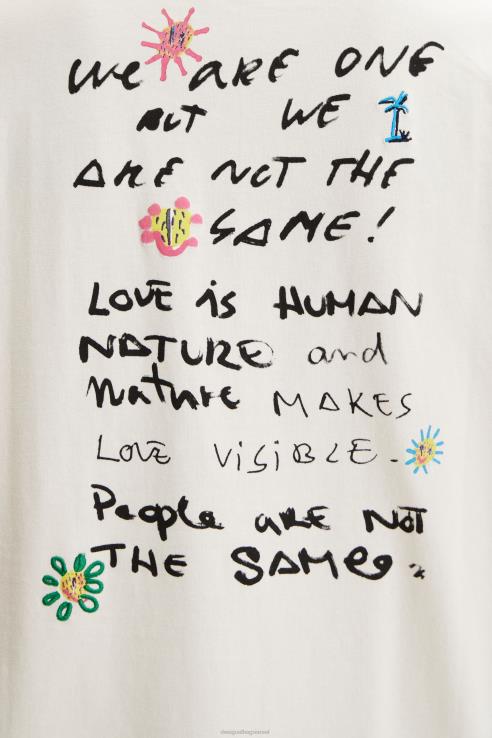 We ARE ONE
BUT WE
ARE NOT THE
SAME!
LOVE is HUMAN
NATURE and
Nature MAKES
LOVE VISIBLE.
People aRE NOT
THE SAMe.